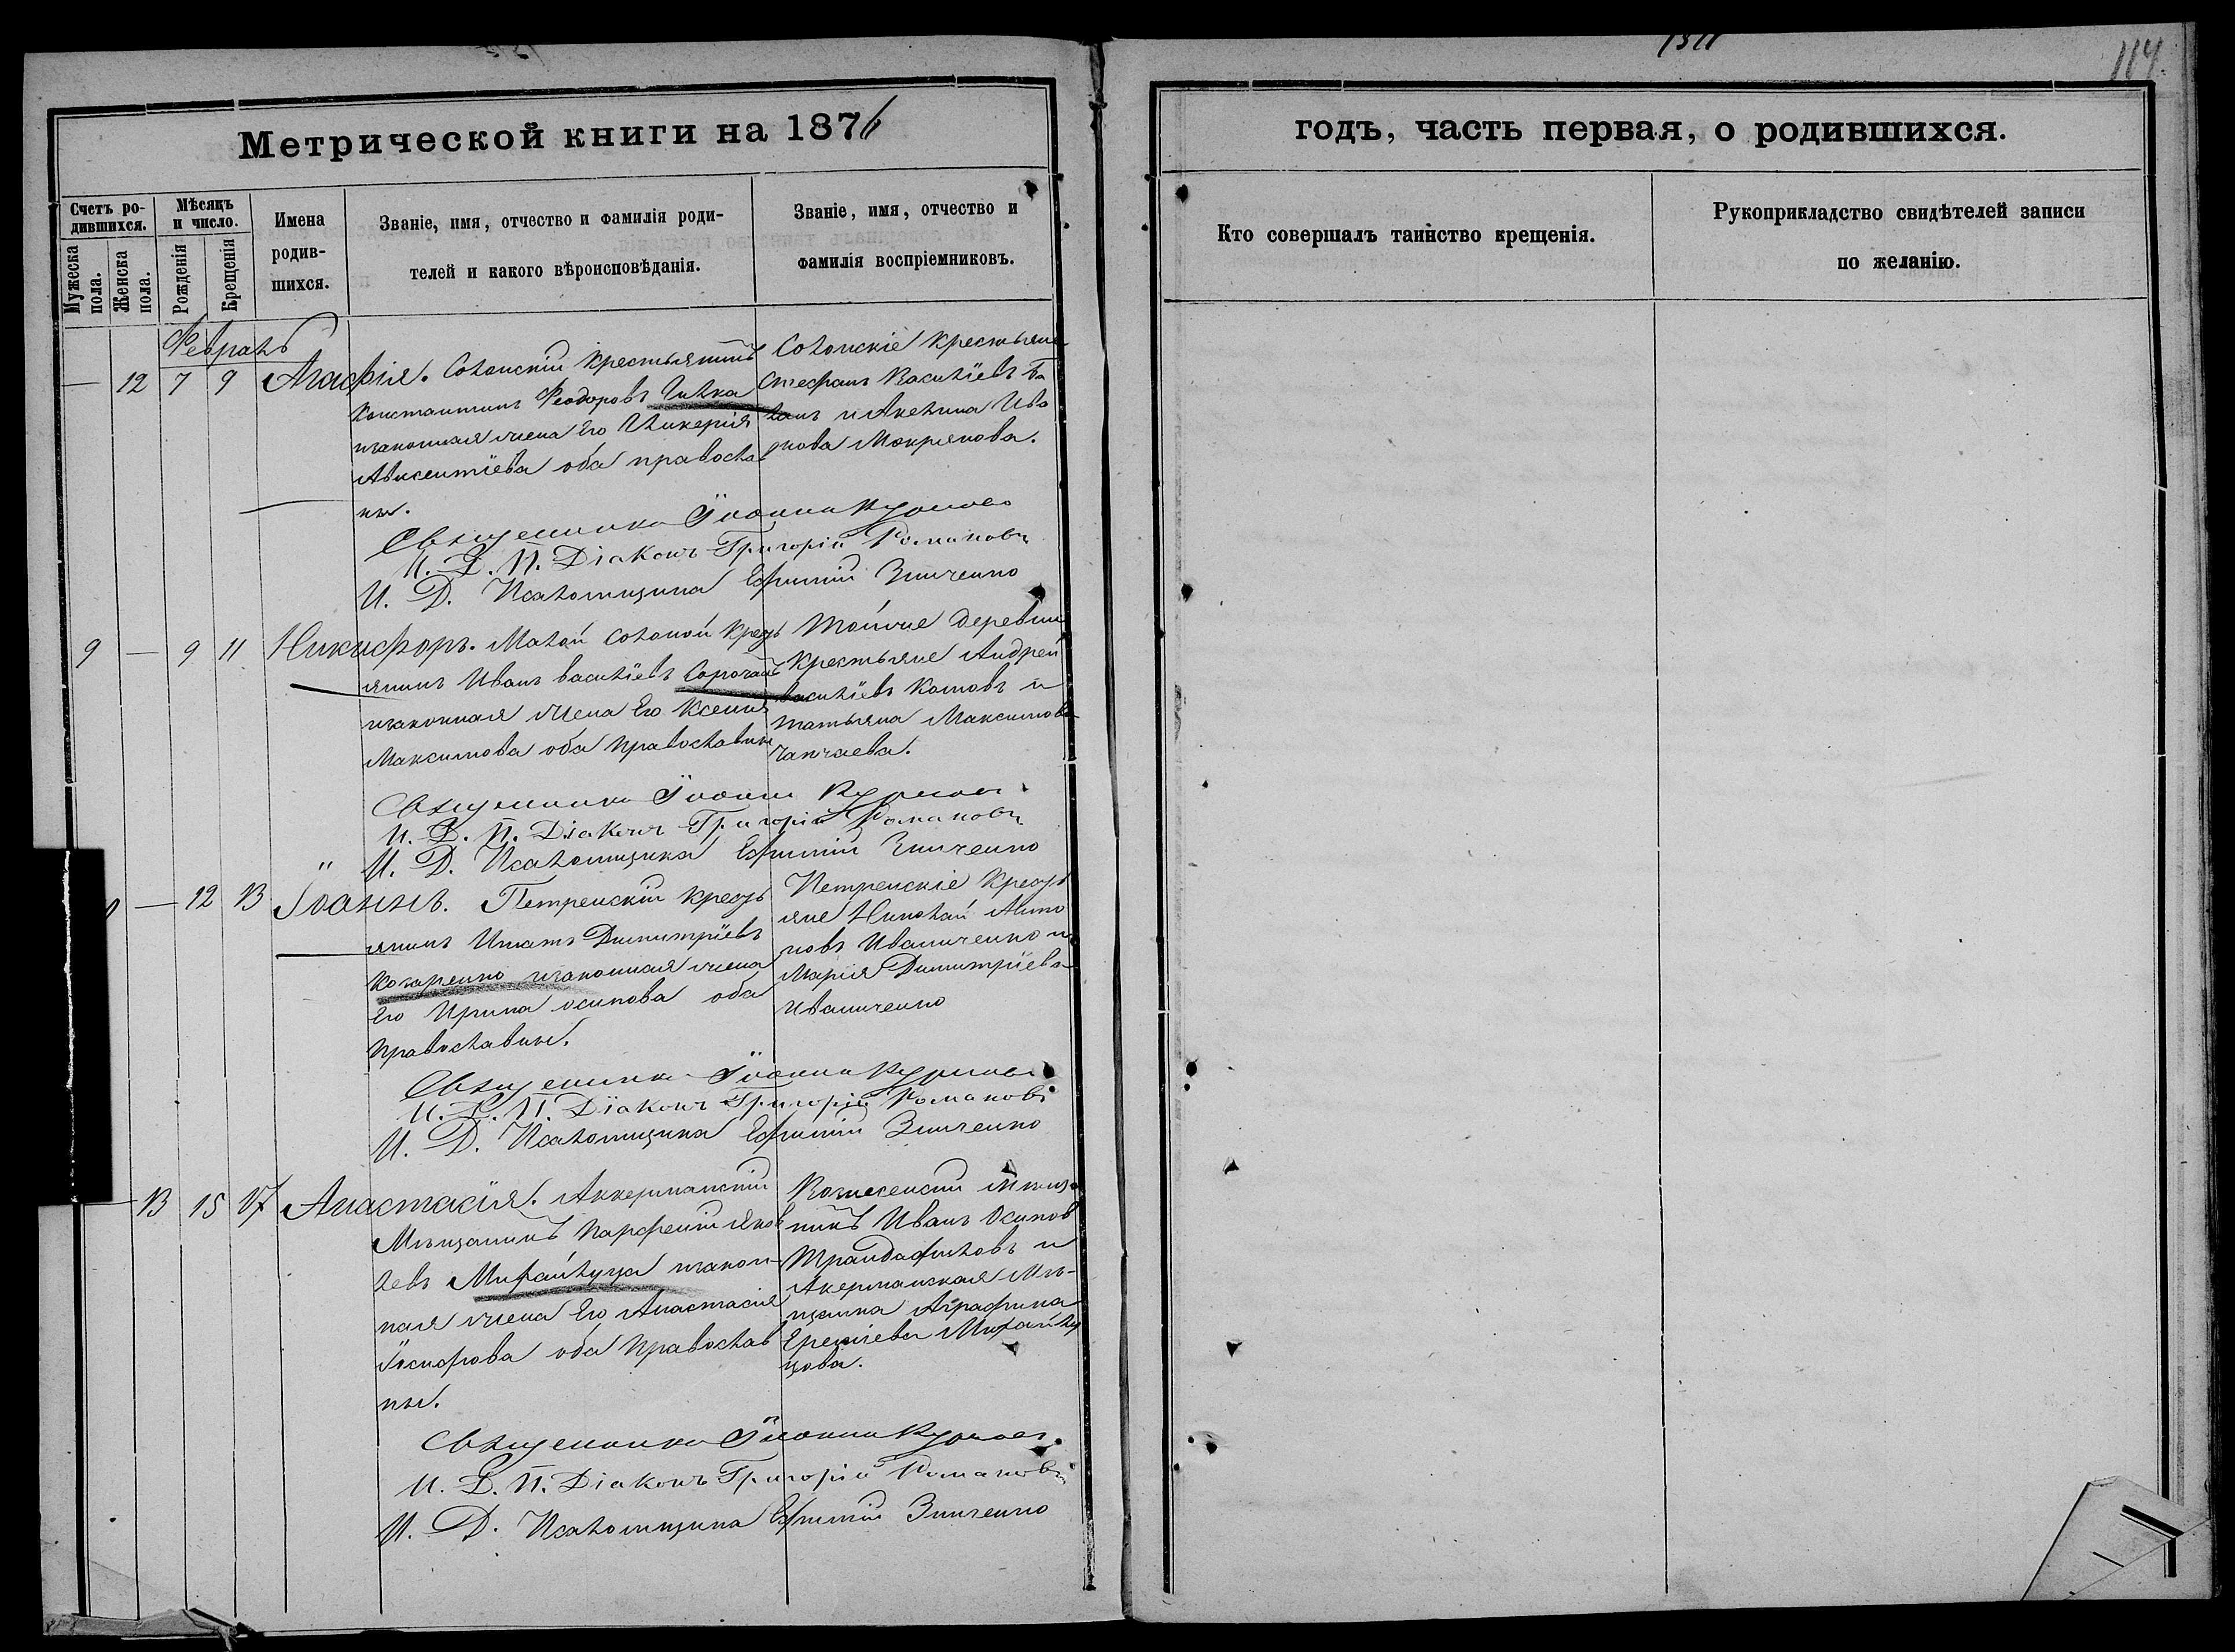 114.
Метрической книги на 1876
годъ, часть первая, о родившихся.
Счетъ ро-
дившихся.
Мужеска
пола.
Женска
пола.
Мѣсяцъ
и число.
Рожденія
Крещенія
Имена
родив-
шихся.
Званіе, имя, отчество и фамилія роди-
телей и какого вѣроисповѣданія.
Званіе, имя, отчество и
фамилія воспріемниковъ.
Кто совершалъ таинство крещенія.
Рукоприкладство свидѣтелей записи
по желанію.
Февраль
— 12 7 9 Агафія.
крестьянинъ
Константинъ Феодоровъ
и законная жена его Гликерія
Авксентіева оба православ
ны.
крестьяне
Стефанъ Василіевъ Ба
ланъ и Акелина Ива
нова Мокрякова.
Священникъ Іоаннъ
И. Д. П. Діаконъ Григорій Романовъ
И. Д. Псаломщика Ефимій Зинченко
9 — 9 11 Никифоръ.
Малой Солоной кресть
янинъ Иванъ Василіевъ Сорочанъ
и законная жена его Ксенія
Максимова оба православны
Той же деревни
крестьяне Андрей
Василіевъ Котовъ и
Татьяна Максимова
Чапчаева.
Священникъ Іоаннъ
И. Д. П. Діаконъ Григорій Романовъ
И. Д. Псаломщика Ефимій Зинченко
— 12 13 Іоаннъ.
Петренскій кресть
янинъ Игнатъ Димитріевъ
и законная жена
его Ирина Осипова оба
православны.
Петренскіе кресть
яне Николай Анто
новъ Иваниченко и
Марія Димитріева
Иваниченко
Священникъ Іоаннъ
И. Д. П. Діаконъ Григорій Романовъ
И. Д. Псаломщика Ефимій Зинченко
— 13 15 17 Анастасія.
Аккерманскій
Мѣщанинъ Парфеній Яков
левъ Михайлуца и закон-
ная жена его Анастасія
Іосифова оба православ
ны.
Иванъ Осипов
Трандафиловъ и
Акерманская Мѣ-
щанка Аграфина
Михайлу
цова.
Священникъ Іоаннъ
И. Д. П. Діаконъ Григорій Романовъ
И. Д. Псаломщика Ефимій Зинченко